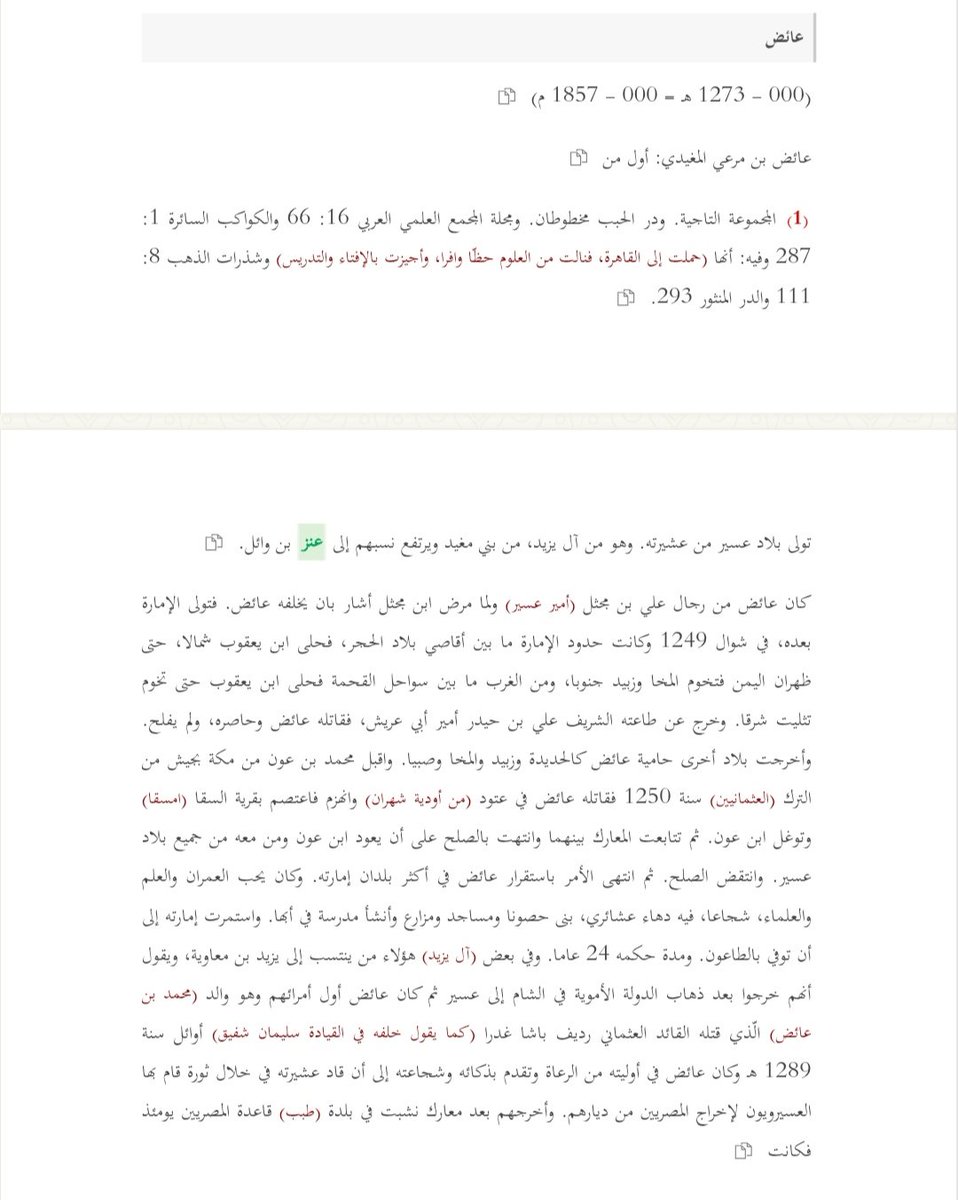 عائض
(000 - 1273 هـ = 000 - 1857 م)
عائض بن مرعي المغيدي: أول من
(1) المجموعة التاجية. ودر الحبب مخطوطان. ومجلة المجمع العلمي العربي 16: 66 والكواكب السائرة 1:
287 وفيه: أنها (حملت إلى القاهرة، فنالت من العلوم حظّا وافرا، وأجيزت بالإفتاء والتدريس) وشذرات الذهب 8:
111 والدر المنثور 293.
تولى بلاد عسير من عشيرته. وهو من آل يزيد، من بني مغيد ويرتفع نسبهم إلى عنز بن وائل.
كان عائض من رجال علي بن مجثل (أمير عسير) ولما مرض ابن مجثل أشار بان يخلفه عائض. فتولى الإمارة
بعده، في شوال 1249 وكانت حدود الإمارة ما بين أقاصي بلاد الحجر، فحلى ابن يعقوب شمالا، حتى
ظهران اليمن فتخوم المخا وزبيد جنوبا، ومن الغرب ما بين سواحل القحمة فحلى ابن يعقوب حتى تخوم
تثليت شرقا. وخرج عن طاعته الشريف علي بن حيدر أمير أبي عريش، فقاتله عائض وحاصره، ولم يفلح.
وأخرجت بلاد أخرى حامية عائض كالحديدة وزبيد والمخا وصبيا. واقبل محمد بن عون من مكة بجيش من
الترك (العثمانيين) سنة 1250 فقاتله عائض في عتود (من أودية شهران) وانهزم فاعتصم بقرية السقا (امسقا)
وتوغل ابن عون. ثم تتابعت المعارك بينهما وانتهت بالصلح على أن يعود ابن عون ومن معه من جميع بلاد
عسير. وانتقض الصلح. ثم انتهى الأمر باستقرار عائض في أكثر بلدان إمارته. وكان يحب العمران والعلم
والعلماء، شجاعا، فيه دهاء عشائري، بنى حصونا ومساجد ومزارع وأنشأ مدرسة في أبها. واستمرت إمارته إلى
أن توفي بالطاعون. ومدة حكمه 24 عاما. وفي بعض (آل يزيد) هؤلاء من ينتسب إلى يزيد بن معاوية، ويقول
أنهم خرجوا بعد ذهاب الدولة الأموية في الشام إلى عسير ثم كان عائض أول أمرائهم وهو والد (محمد بن
عائض) الّذي قتله القائد العثماني رديف باشا غدرا (كما يقول خلفه في القيادة سليمان شفيق) أوائل سنة
1289 هـ وكان عائض في أوليته من الرعاة وتقدم بذكائه وشجاعته إلى أن قاد عشيرته في خلال ثورة قام بها
العسيرويون لإخراج المصريين من ديارهم. وأخرجهم بعد معارك نشبت في بلدة (طبب) قاعدة المصريين يومئذ
فكانت